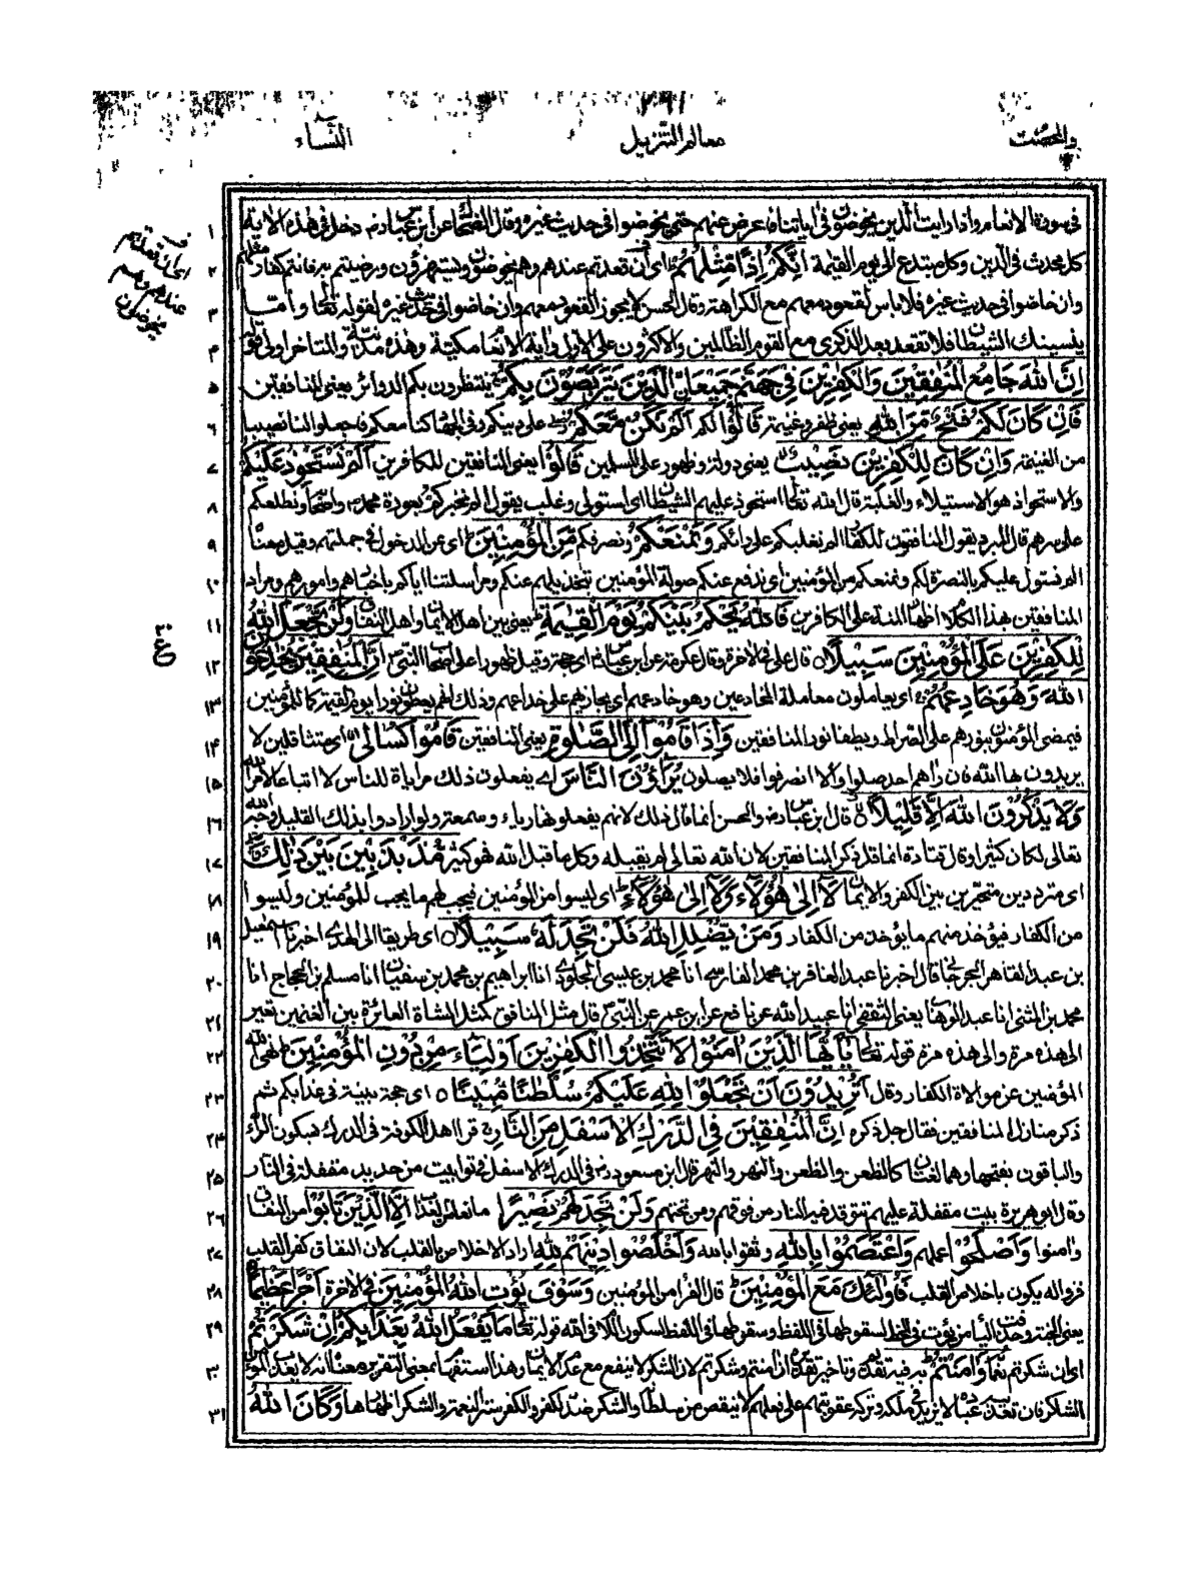 والمحصنت
معالم التنزيل
النساء
في سورة الانعام واذا رايت الذين يخوضون في اياتنا فاعرض عنهم حتى يخوضوا في حديث غيره وقال الضحاك عن ابن عباس دخل في هذه الاية
كل محدث في الدين وكل مبتدع الى يوم القيمة اِنَّكُمْ اِذًا مِّثْلُهُمْ اي ان قعدتم عندهم وهم يخوضون ويستهزؤن ورضيتم به فانتم كفار مثلهم
وان خاضوا في حديث غيره فلا باس بالقعود معهم مع الكراهة وقال الحسن لا يجوز القعود معهم وان خاضوا في حديث غيره لقوله تعالى واما
ينسينك الشيطان فلا تقعد بعد الذكرى مع القوم الظالمين والاكثرون على الاول واية الانعام مكية وهذه مدنية والمتاخر اولى
اِنَّ اللهَ جَامِعُ الْمُنٰفِقِيْنَ وَالْكٰفِرِيْنَ فِيْ جَهَنَّمَ جَمِيْعًا الَّذِيْنَ يَتَرَبَّصُوْنَ بِكُمْ ينتظرون بكم الدوائر يعني المنافقين
فَاِنْ كَانَ لَكُمْ فَتْحٌ مِّنَ اللهِ يعني ظفر وغنيمة قَالُوْا لكم اَلَمْ نَكُنْ مَّعَكُمْ على دينكم وفي الجهاد كنا معكم فاجعلوا لنا نصيبا
من الغنيمة وَاِنْ كَانَ لِلْكٰفِرِيْنَ نَصِيْبٌ يعني دولة وظهور على المسلمين قَالُوْا يعني المنافقين للكافرين اَلَمْ نَسْتَحْوِذْ عَلَيْكُمْ
والاستحواذ هو الاستيلاء والغلبة قال الله تعالى استحوذ عليهم الشيطان اي استولى وغلب يقول الم نخبركم بعورة محمد واصحابه ونطلعكم
على سرهم قال المبرد يقول المنافقون للكفار الم نغلبكم على رائكم وَنَمْنَعْكُمْ ونصرفكم مِّنَ الْمُؤْمِنِيْنَ اي عن الدخول في جملتهم وقيل معناه
الم نستول عليكم بالنصرة لكم ونمنعكم من المؤمنين اي ندفع عنكم صولة المؤمنين بتخذيلهم عنكم ومراسلتنا اياكم باخبارهم وامورهم ومراد
المنافقين بهذا الكلام اظهار المنة على الكافرين فَاللهُ يَحْكُمُ بَيْنَكُمْ يَوْمَ الْقِيٰمَةِ يعني بين اهل الايمان واهل النفاق وَلَنْ يَّجْعَلَ اللهُ
لِلْكٰفِرِيْنَ عَلَى الْمُؤْمِنِيْنَ سَبِيْلًا قال علي في الاخرة وقال عكرمة عن ابن عباس اي حجة وقيل ظهورا على اصحاب النبي اِنَّ الْمُنٰفِقِيْنَ يُخٰدِعُوْنَ
اللهَ وَهُوَ خَادِعُهُمْ اي يعاملون معاملة المخادعين وهو خادعهم اي يجازيهم على خداعهم وذلك انهم يعطون نورا يوم القيمة كما للمؤمنين
فيمضي المؤمنون بنورهم على الصراط ويطفأ نور المنافقين وَاِذَا قَامُوْا اِلَى الصَّلٰوةِ يعني المنافقين قَامُوْا كُسَالٰى اي متثاقلين لا
يريدون بها الله فان راهم احد صلوا والا انصرفوا فلا يصلون يُرَاؤُنَ النَّاسَ اي يفعلون ذلك مراياة للناس لا اتباعا لامر الله
وَلَا يَذْكُرُوْنَ اللهَ اِلَّا قَلِيْلًا قال ابن عباس والحسن انما قال ذلك لانهم يفعلونها رياء وسمعة ولو ارادوا بذلك القليل وجه الله
تعالى لكان كثيرا وقال قتادة انما قل ذكر المنافقين لان الله تعالى لم يقبله وكل ما قبل الله فهو كثير مُذَبْذَبِيْنَ بَيْنَ ذٰلِكَ
اي مترددين متحيرين بين الكفر والايمان لَا اِلٰى هٰؤُلَاءِ وَلَا اِلٰى هٰؤُلَاءِ اي ليسوا من المؤمنين فيجب لهم ما يجب للمؤمنين وليسوا
من الكفار فيؤخذ منهم ما يؤخذ من الكفار وَمَنْ يُّضْلِلِ اللهُ فَلَنْ تَجِدَ لَهٗ سَبِيْلًا اي طريقا الى الهدى اخبرنا اسمعيل
بن عبد القاهر الجرجاني قال اخبرنا عبد الغافر بن محمد الفارسي انا محمد بن عيسى الجلودي انا ابراهيم بن محمد بن سفيان انا مسلم بن الحجاج انا
محمد بن المثنى انا عبد الوهاب يعني الثقفي انا عبيد الله عن نافع عن ابن عمر عن النبي قال مثل المنافق كمثل الشاة العائرة بين الغنمين تعير
الى هذه مرة والى هذه مرة قوله تعالى يٰاَيُّهَا الَّذِيْنَ اٰمَنُوْا لَا تَتَّخِذُوا الْكٰفِرِيْنَ اَوْلِيَاءَ مِنْ دُوْنِ الْمُؤْمِنِيْنَ نهى الله
المؤمنين عن موالاة الكفار وقال اَتُرِيْدُوْنَ اَنْ تَجْعَلُوْا لِلهِ عَلَيْكُمْ سُلْطٰنًا مُّبِيْنًا اي حجة بينة في عذابكم ثم
ذكر منازل المنافقين فقال جل ذكره اِنَّ الْمُنٰفِقِيْنَ فِي الدَّرْكِ الْاَسْفَلِ مِنَ النَّارِ قرا اهل الكوفة في الدرك بسكون الراء
والباقون بفتحها وهما لغتان كالظعن والظعن والنهر والنهر قال ابن مسعود في الدرك الاسفل في توابيت من حديد مقفلة في النار
وقال ابو هريرة بيت مقفلة عليهم تتوقد فيه النار من فوقهم ومن تحتهم وَلَنْ تَجِدَ لَهُمْ نَصِيْرًا مانعا من العذاب اِلَّا الَّذِيْنَ تَابُوْا من النفاق
وامنوا وَاَصْلَحُوْا اعملهم وَاعْتَصَمُوْا بِاللهِ وثقوا بالله وَاَخْلَصُوْا دِيْنَهُمْ لِلهِ اراد الاخلاص بالقلب لان النفاق كفر القلب
فزواله يكون باخلاص القلب فَاُولٰئِكَ مَعَ الْمُؤْمِنِيْنَ قال الفرا من المؤمنين وَسَوْفَ يُؤْتِ اللهُ الْمُؤْمِنِيْنَ في الاخرة اَجْرًا عَظِيْمًا
يعني الجنة وحذفت اليا من يؤت في الخط لسقوطها في اللفظ وسقوطها في اللفظ لسكون اللام في الله قوله تعالى مَا يَفْعَلُ اللهُ بِعَذَابِكُمْ اِنْ شَكَرْتُمْ
اي ان شكرتم نعماه وَاٰمَنْتُمْ به فيه تقديم وتاخير تقديره ان امنتم وشكرتم لان الشكر لا ينفع مع عدم الايمان وهذا استفهام بمعنى التقرير معناه انه لا يعذب المؤمن
الشاكر فان تعذيبه عباده لا يزيد في ملكه وتركه عقوبتهم على فعلهم لا ينقص من سلطانه والشكر ضد الكفر والكفر ستر النعمة والشكر اظهارها وَكَانَ اللهُ
اي ان قعدتم
عندهم وهم
يخوضون
ع
١
٢
٣
۴
۵
٦
٧
٨
٩
١٠
١١
١٢
١٣
١۴
١۵
١٦
١٧
١٨
١٩
٢٠
٢١
٢٢
٢٣
٢۴
٢۵
٢٦
٢٧
٢٨
٢٩
٣٠
٣١